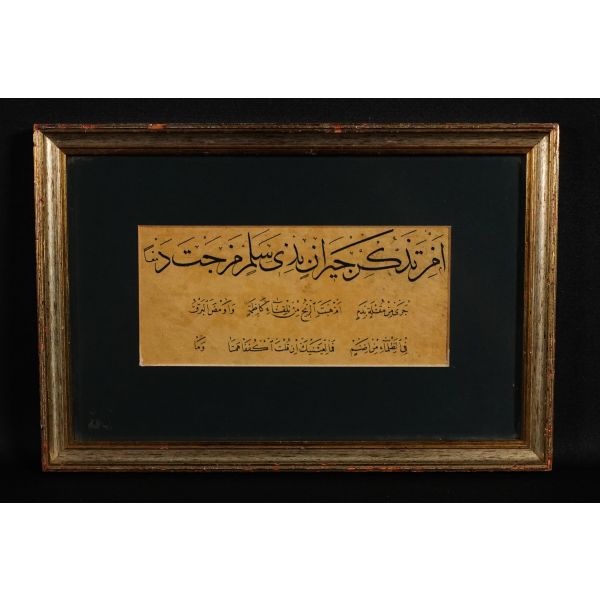 اَمِنْ تَذَكُّرِ جيرَانٍ بِذِى سَلَمٍ مَزَجْتَ دَمْعًا
جَرٰى مِنْ مُقْلَةٍ بِدَمٍ اَمْ هَبَّتِ الرّيحُ مِنْ تِلْقَاءِ كَاظِمَةٍ وَاَوْمَضَ الْبَرْقُ
فِى الظَّلْمَاءِ مِنْ اِضَمٍ فَمَا لِعَيْنَيْكَ اِنْ قُلْتَ اكْفُفَا هَمَتَا وَمَا